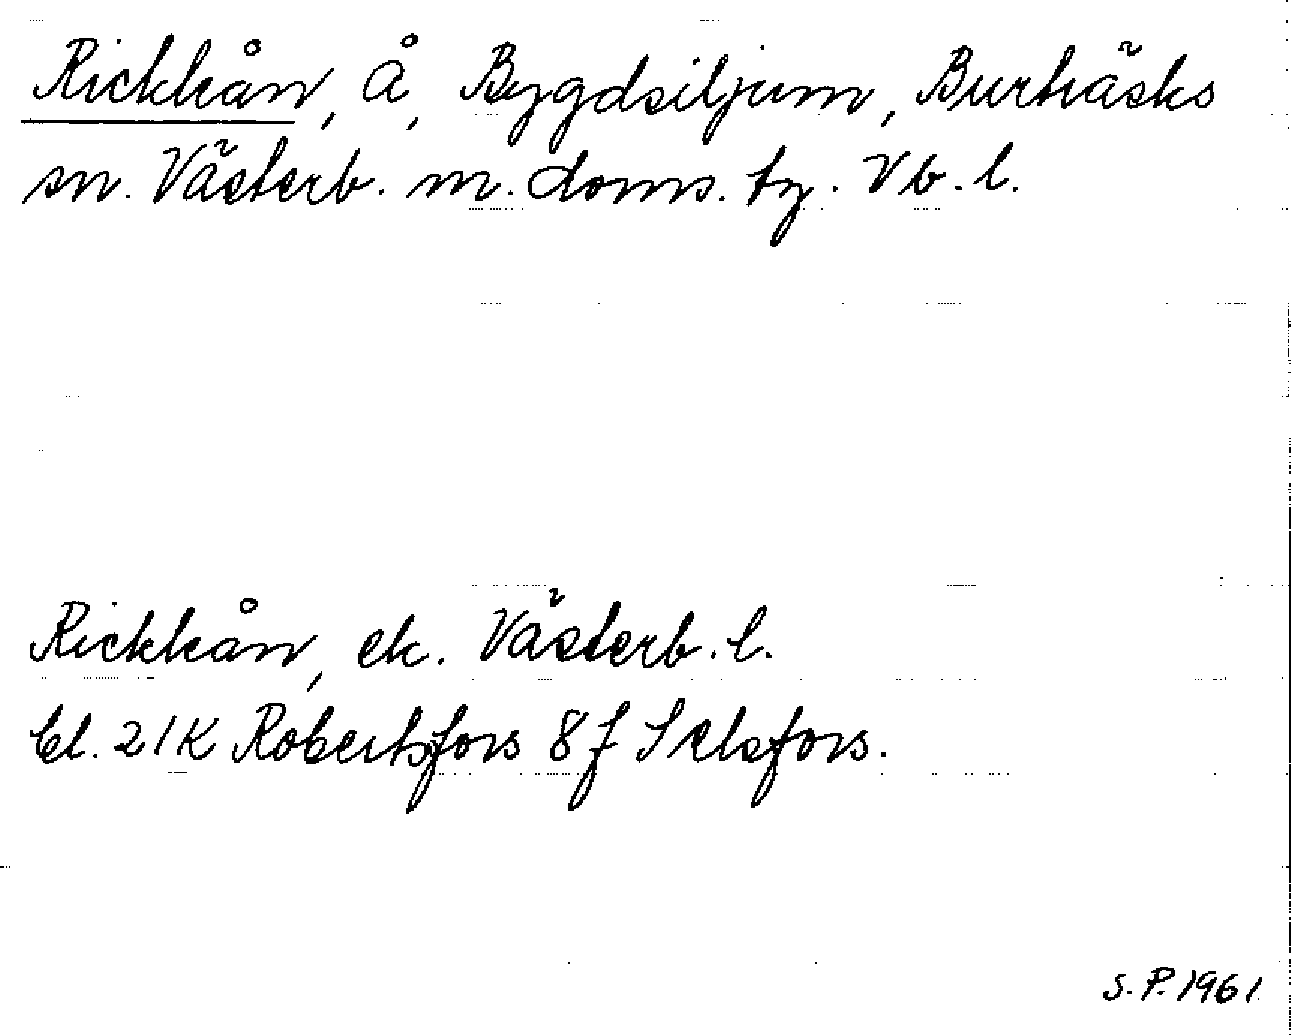 Rickkån, å, Bygdsiljum, Burträsks
sn. Västerb. m. doms. tg. Vb. l.
Rickkån, ek. Västerb. l.
bl. 21K Robertsfors 8f Selsfors.
S.P. 1961